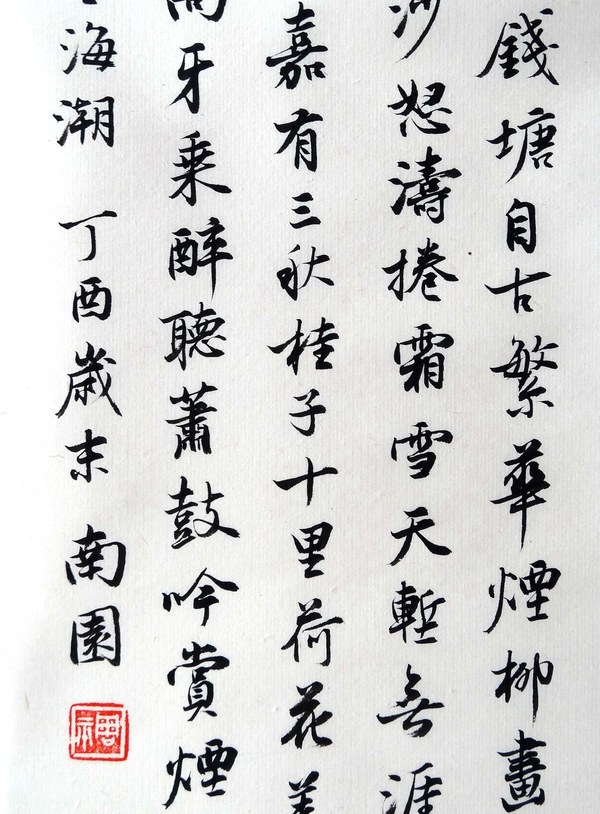 錢塘自古繁華煙柳畫
沙怒濤捲霜雪天塹無涯
嘉有三秋桂子十里荷花羌
高牙乘醉聽蕭鼓吟賞煙
海潮 丁酉歲末 南園